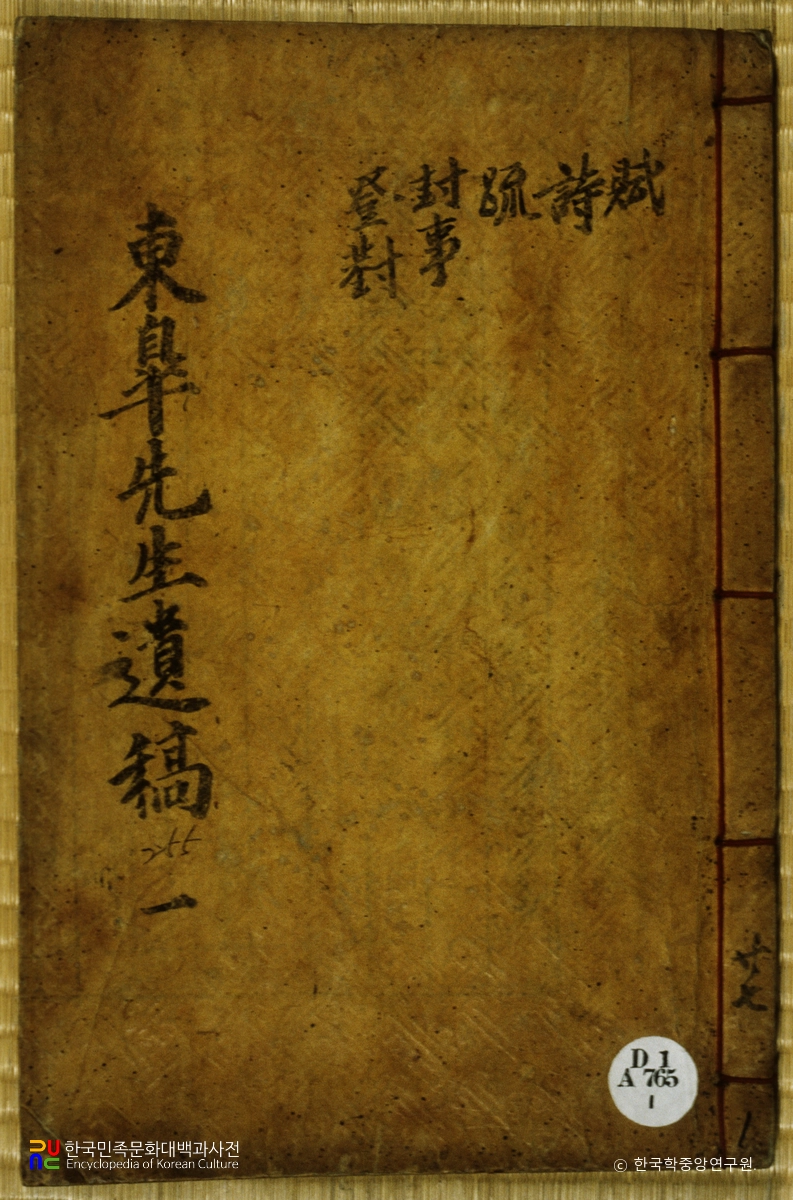 賦
詩
疏
封事
登對
東皐先生遺稿 一
255
廿七
D 1
A 765
1
1
한국민족문화대백과사전
Encyclopedia of Korean Culture
ⓒ 한국학중앙연구원